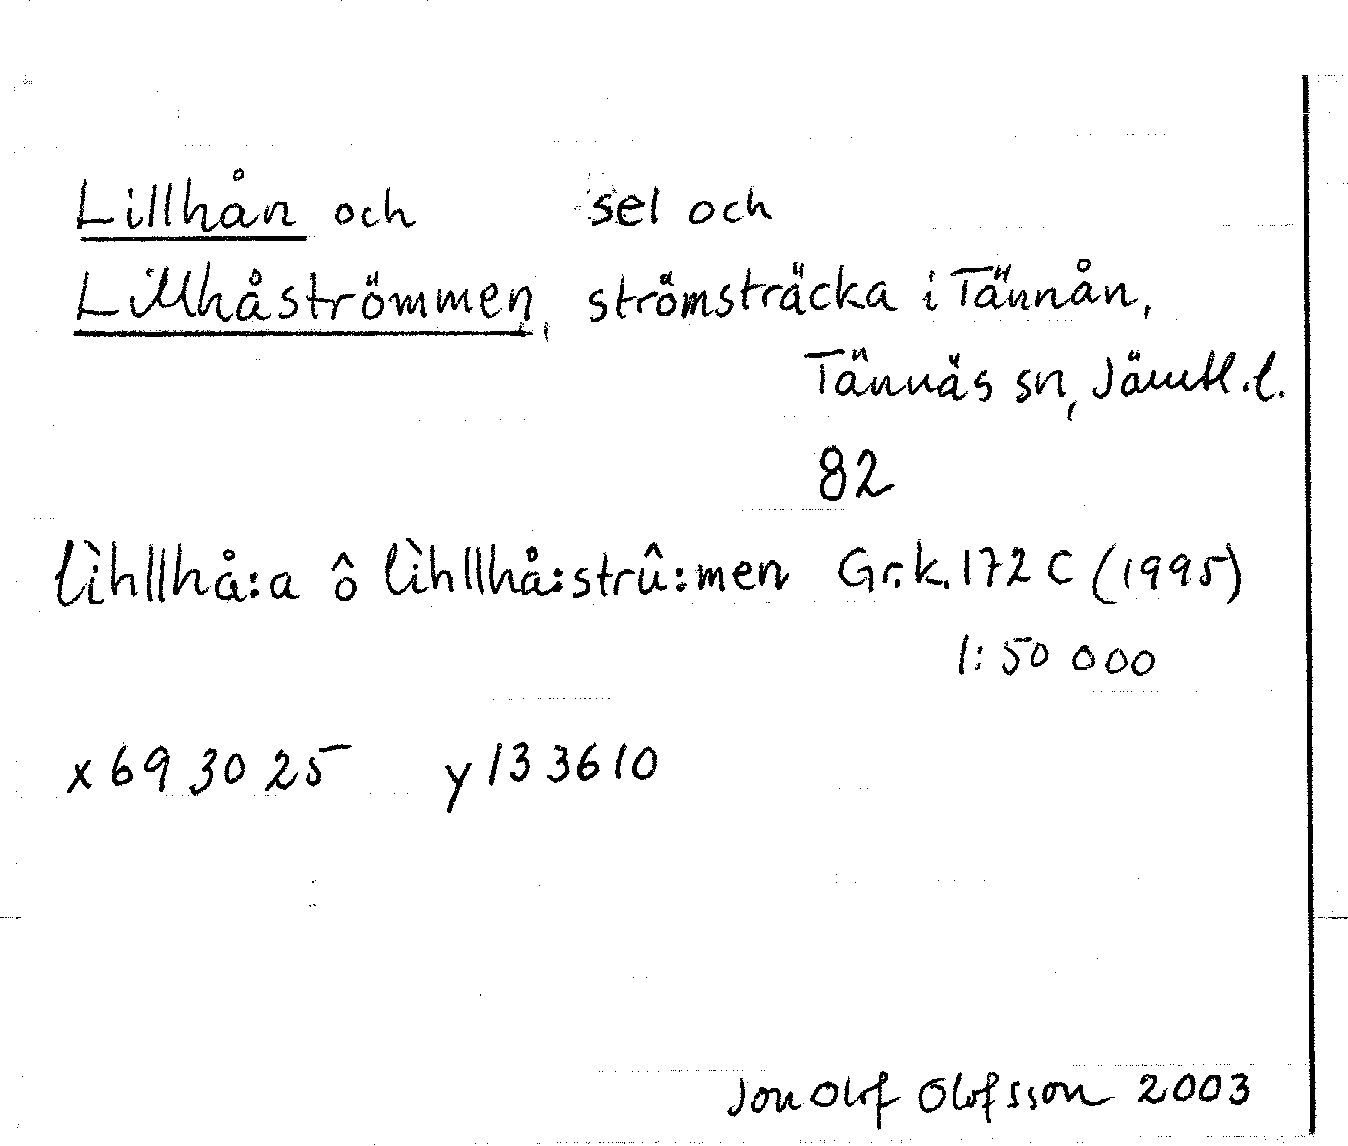 Lillhån och sel och
Lillhåströmmen, strömsträcka i Tännån,
Tännäs sn, Jämtl.l.
82
lìhllhå:a ô lìhllhå:strû:men Gr.k. 172 C (1995)
1:50 000
x 69 30 25 y 13 36 10
Jon Olof Olofsson 2003